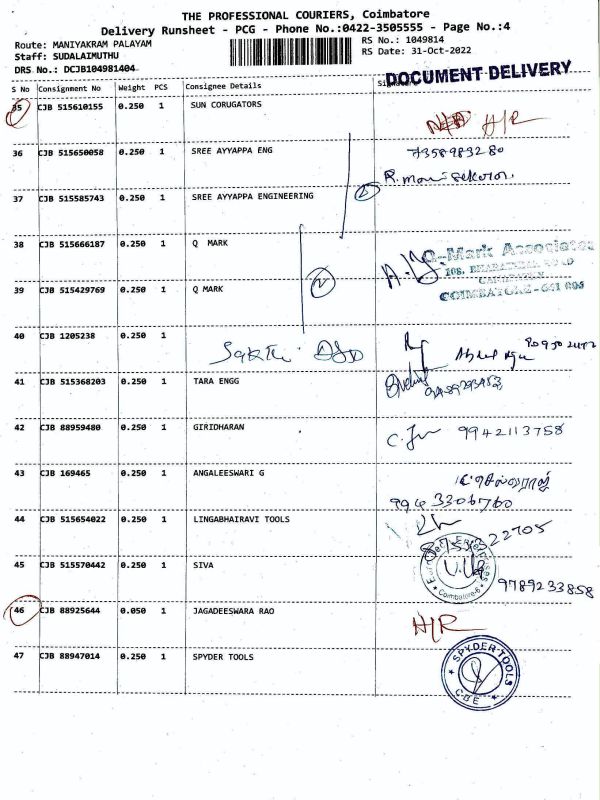 THE PROFESSIONAL COURIERS, Coimbatore
Delivery Runsheet - PCG - Phone No.:0422-3505555 - Page No.:4
Route: MANIYAKRAM PALAYAM
Staff: SUDALAIMUTHU
DRS No.: DCJB104981404
RS No.: 1049814
RS Date: 31-Oct-2022
DOCUMENT DELIVERY
S No Consignment No Weight PCS Consignee Details
35 CJB 515610155 0.250 1 SUN CORUGATORS
H/R
36 CJB 515650058 0.250 1 SREE AYYAPPA ENG
7358983280
37 CJB 515585743 0.250 1 SREE AYYAPPA ENGINEERING
38 CJB 515666187 0.250 1 Q MARK
Q-Mark Associates
108, BHARATHIAR ROAD
COIMBATORE - 641 006
39 CJB 515429769 0.250 1 Q MARK
40 CJB 1205238 0.250 1
Sakthi
41 CJB 515368203 0.250 1 TARA ENGG
42 CJB 88959480 0.250 1 GIRIDHARAN
9942113758
43 CJB 169465 0.250 1 ANGALEESWARI G
994 3306760
44 CJB 515654022 0.250 1 LINGABHAIRAVI TOOLS
45 CJB 515570442 0.250 1 SIVA
Coimbatore-6
9789233858
46 CJB 88925644 0.050 1 JAGADEESWARA RAO
H/R
47 CJB 88947014 0.250 1 SPYDER TOOLS
SPYDER TOOLS
CBE